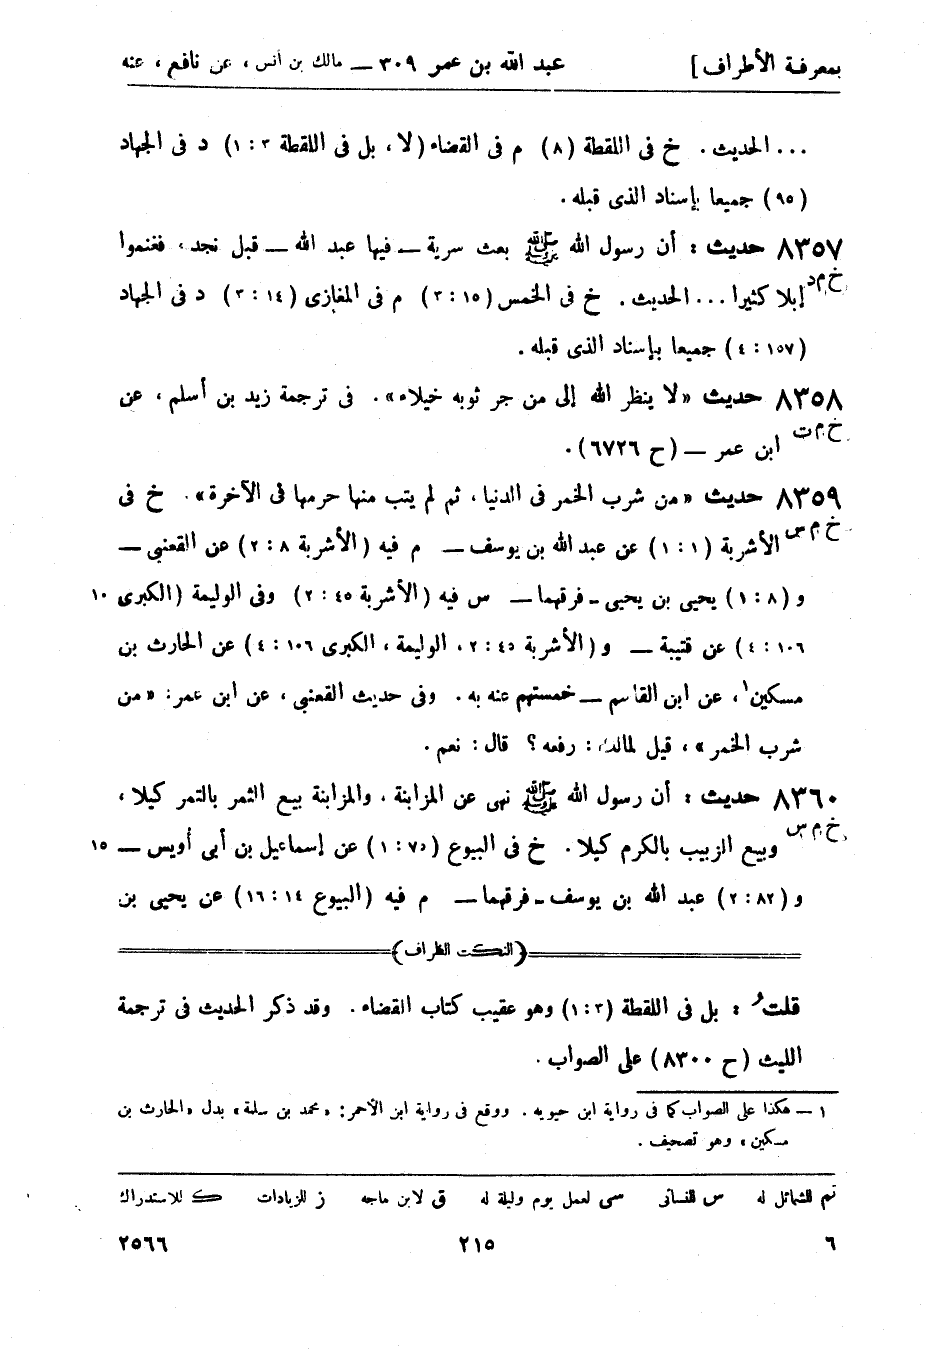 بمعرفة الأطراف] عبد الله بن عمر ٣٠٩ — مالك بن أنس، عن نافع، عنه
... الحديث. خ فى اللقطة (٨) م فى القضاء (لا، بل فى اللقطة ٣ : ١) د فى الجهاد
(٩٥) جميعا بإسناد الذى قبله.
٨٣٥٧ حديث : أن رسول الله ﷺ بعث سرية — فيها عبد الله — قبل نجد، فغنموا
خ م د إبلا كثيرا ... الحديث. خ فى الخمس (١٥ : ٣) م فى المغازى (١٤ : ٣) د فى الجهاد
(١٥٧ : ٤) جميعا بإسناد الذى قبله.
٨٣٥٨ حديث «لا ينظر الله إلى من جر ثوبه خيلاء». فى ترجمة زيد بن أسلم، عن
خ م ت ابن عمر — (ح ٦٧٢٦).
٨٣٥٩ حديث «من شرب الخمر فى الدنيا، ثم لم يتب منها حرمها فى الآخرة». خ فى
خ م س الأشربة (١ : ١) عن عبد الله بن يوسف — م فيه (الأشربة ٨ : ٢) عن القعنبى —
و (٨ : ١) يحيى بن يحيى - فرقهما — س فيه (الأشربة ٤٥ : ٢) وفى الوليمة (الكبرى ١٠
١٠٦ : ٤) عن قتيبة — و (الأشربة ٤٥ : ٢، الوليمة، الكبرى ١٠٦ : ٤) عن الحارث بن
مسكين١، عن ابن القاسم — خمستهم عنه به. وفى حديث القعنبى، عن ابن عمر: «من
شرب الخمر»، قيل لمالك: رفعه؟ قال: نعم.
٨٣٦٠ حديث : أن رسول الله ﷺ نهى عن المزابنة، والمزابنة بيع الثمر بالتمر كيلا،
خ م س وبيع الزبيب بالكرم كيلا. خ فى البيوع (٧٥ : ١) عن إسماعيل بن أبى أويس — ١٥
و (٨٢ : ٢) عبد الله بن يوسف - فرقهما — م فيه (البيوع ١٤ : ١٦) عن يحيى بن
(النكت الظراف)
قلتُ : بل فى اللقطة (٣ : ١) وهو عقيب كتاب القضاء. وقد ذكر الحديث فى ترجمة
الليث (ح ٨٣٠٠) على الصواب.
١ — هكذا على الصواب كما فى رواية ابن حيويه. ووقع فى رواية ابن الأحمر: «محمد بن سلمة» بدل «الحارث بن
مسكين» وهو تصحيف.
تم للشمائل له س للنسائى سى لعمل يوم وليلة له ق لابن ماجه ز للزيادات ك للاستدراك
٦ ٢١٥ ٢٥٦٦